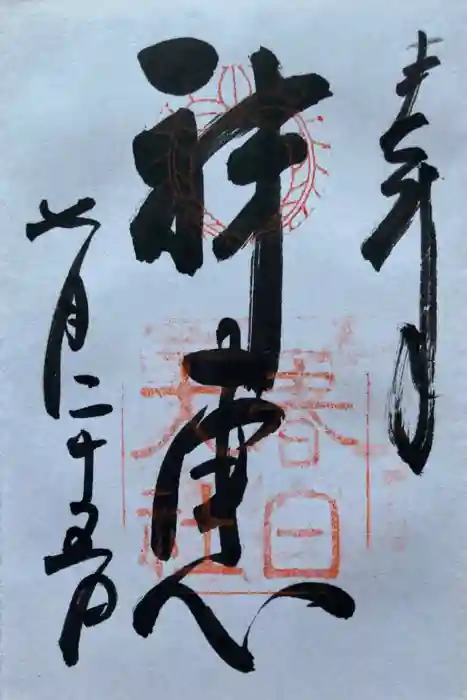 奉拝
七月二十五日
春日
大社